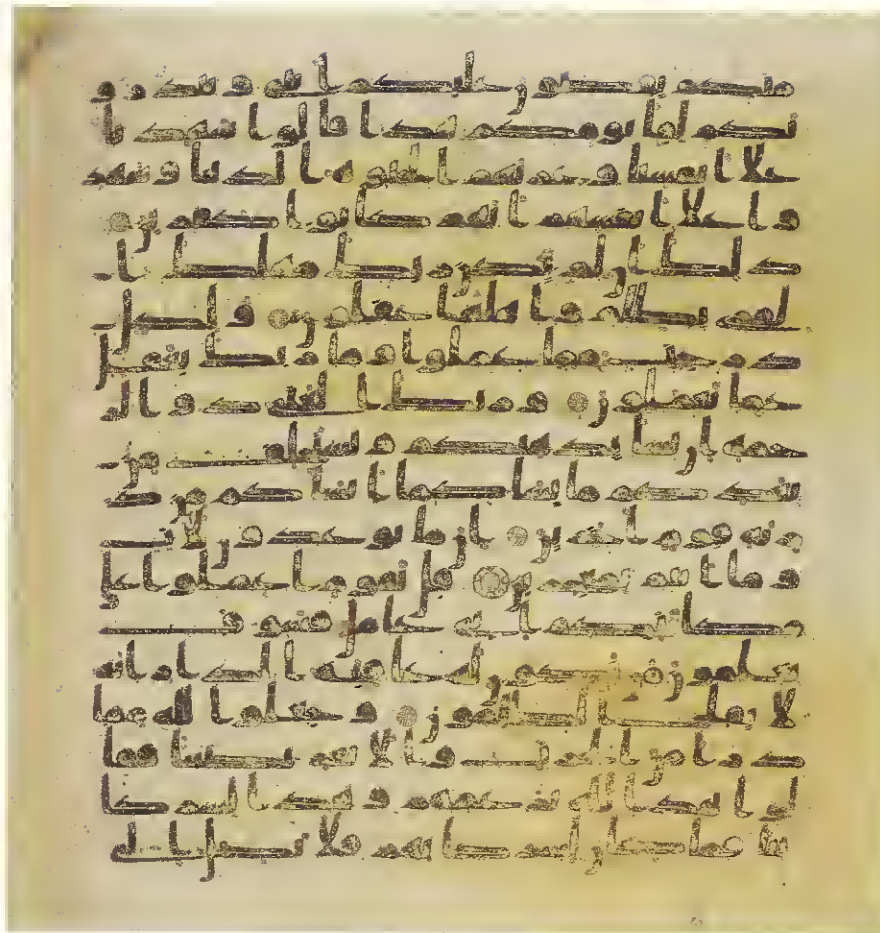 منكم يقصون عليكم ايتى وينذرو
نكم لقا يومكم هذا قالوا شهدنا
على انفسنا وغرتهم الحيوة الدنيا وشهد
وا على انفسهم انهم كانوا كفرين
ذلك ان لم يكن ربك مهلك القر
ى بظلم واهلها غفلون ولكل
درجت مما عملوا وما ربك بغفل
عما يعملون وربك الغنى ذو الر
حمة ان يشا يذهبكم ويستخلف من
بعدكم ما يشا كما انشاكم من ذر
ية قوم اخرين ان ما توعدون لات
وما انتم بمعجزين قل يقوم اعملوا على
مكانتكم انى عامل فسوف
تعلمون من تكون له عقبة الدار انه
لا يفلح الظلمون وجعلوا لله مما
ذرا من الحرث والانعم نصيبا فقا
لوا هذا لله بزعمهم وهذا لشركا
ئنا فما كان لشركائهم فلا يصل الى